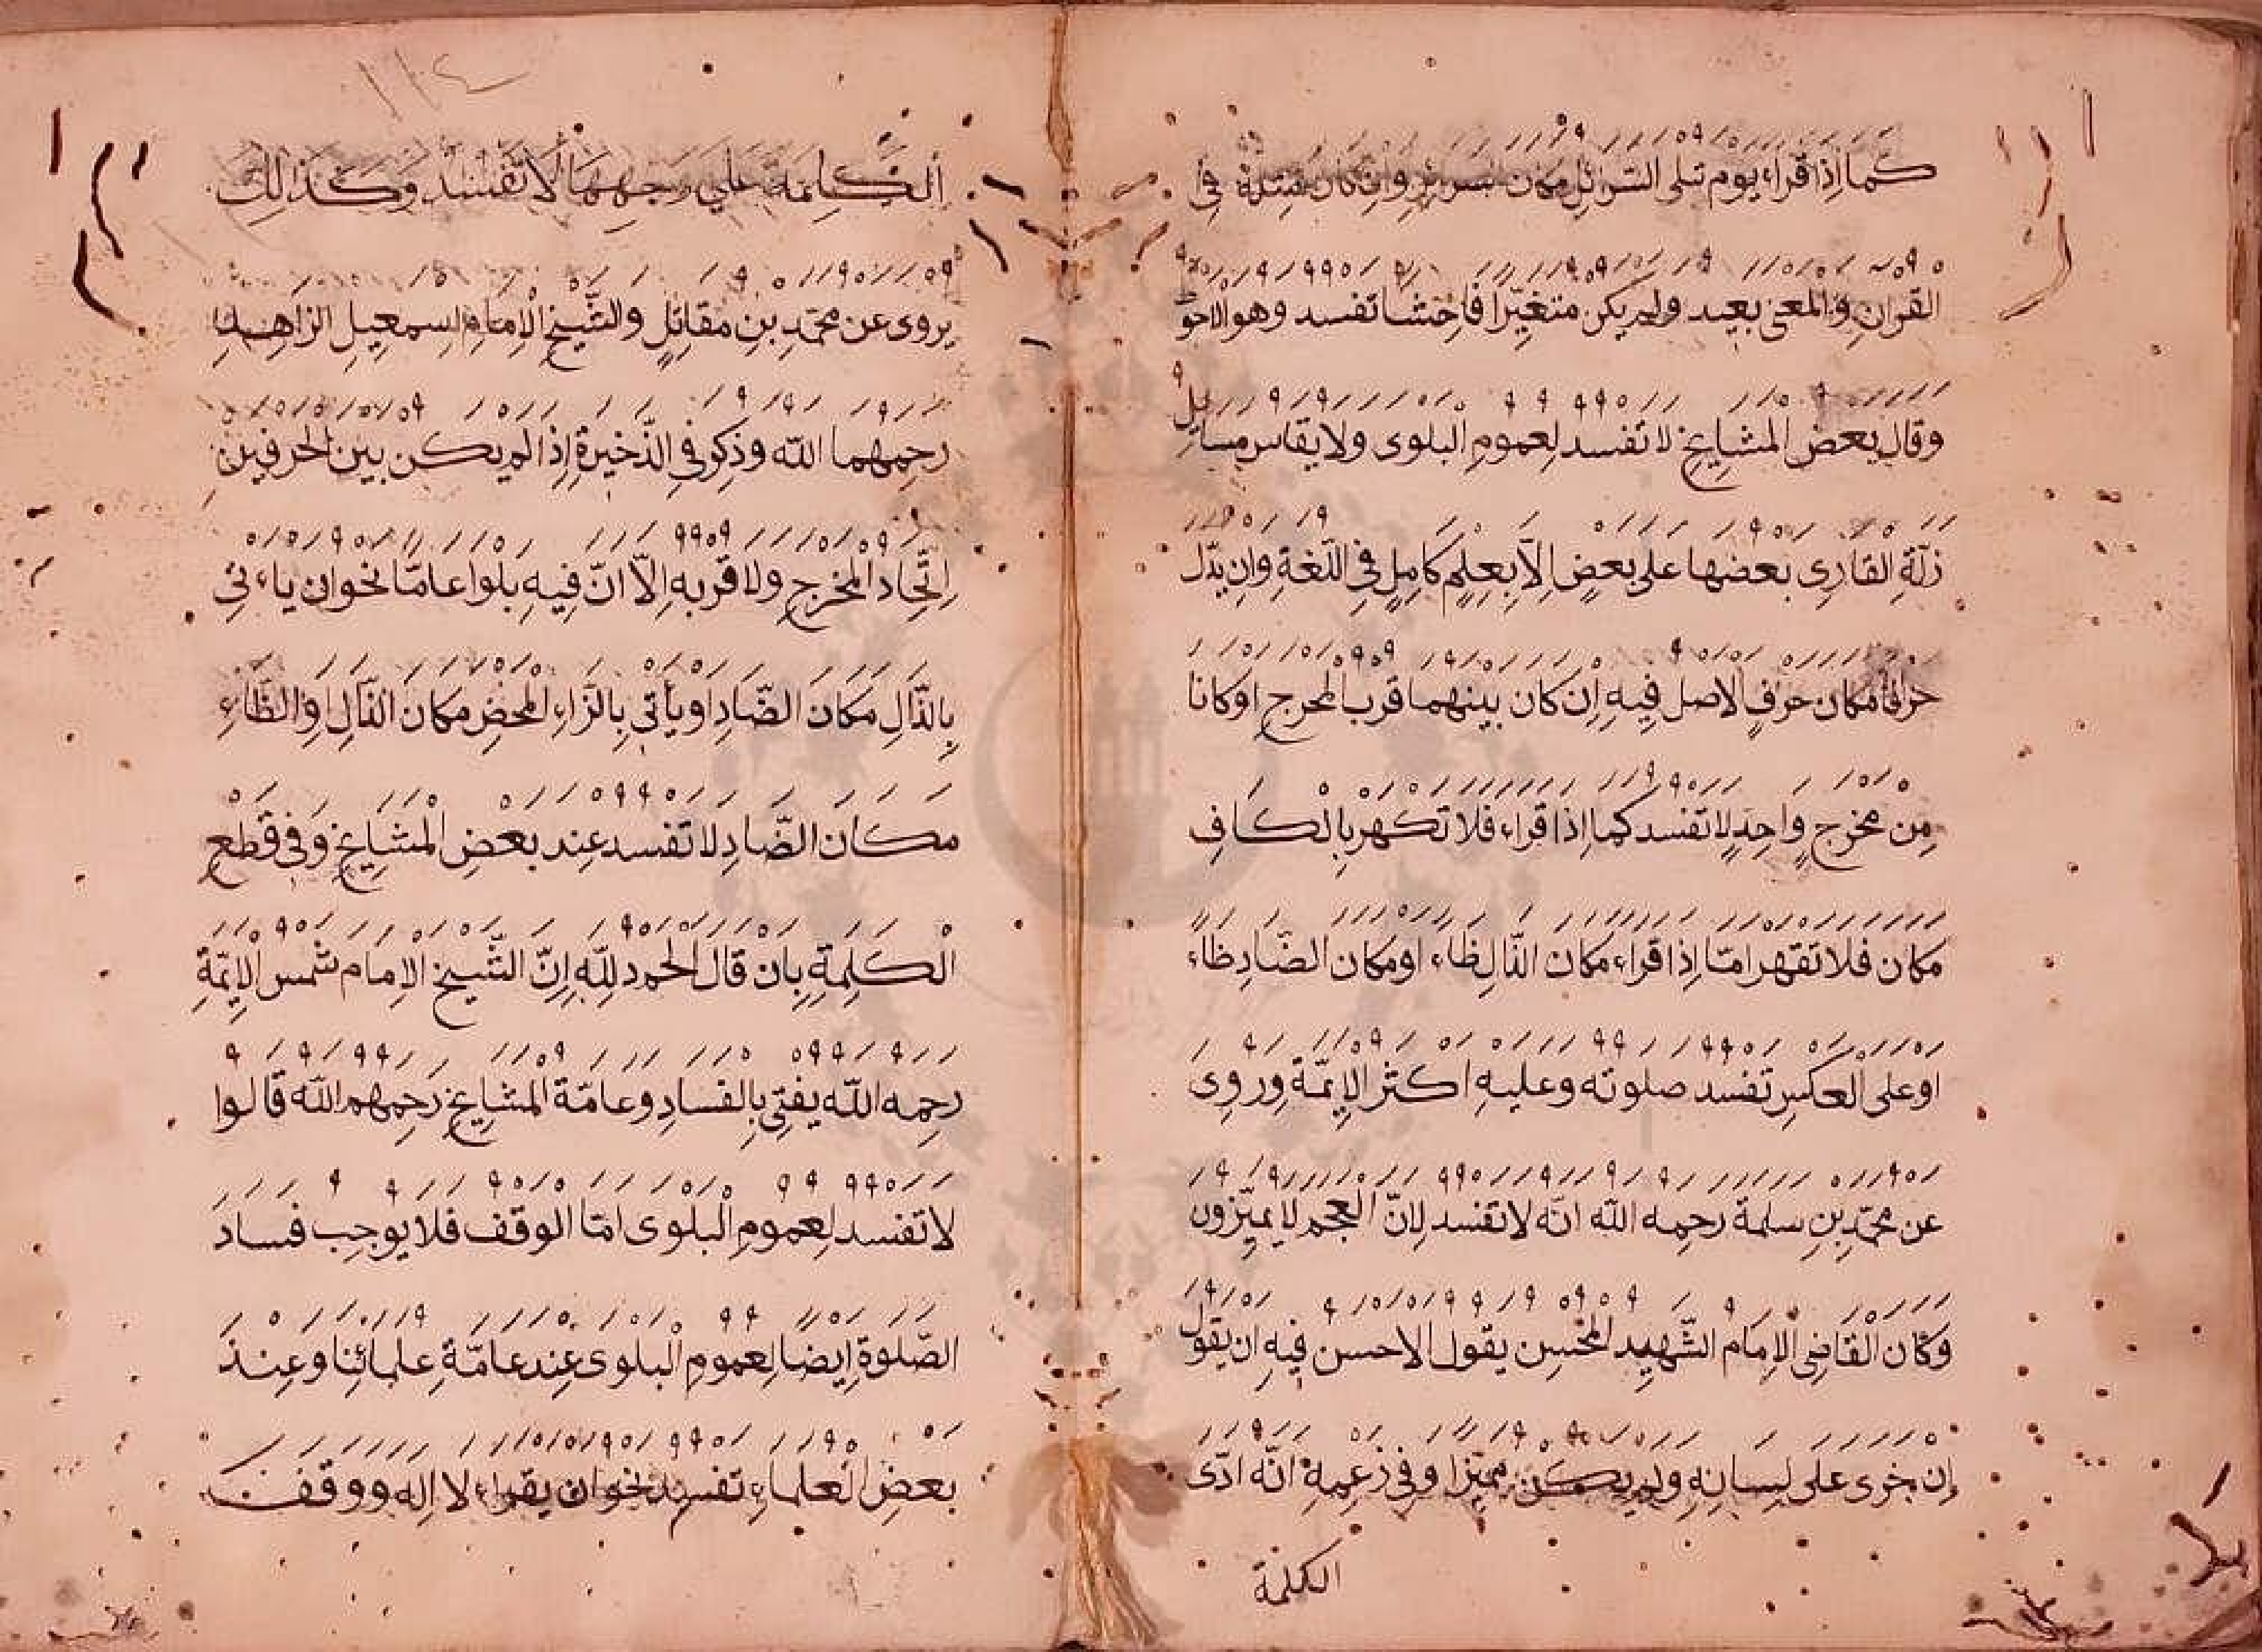 كما اِذا قراء يوم تبلى السّرائل مكان السرائر وان كان مثله فِى
القرانِ وَالمعنى بعيد ولم يكن متغيّرا فاحِشا تفسد وهو الاحو
وقال بعض المشايِخِ لا تفسد لِعمومِ البلوى ولا يقاس مسائِل
زلّةِ القارِى بعضها على بعضٍ اِلّا بِعِلمٍ كامِلٍ فِى اللّغةِ وان بدّل
حرفا مكان حرفٍ لاصل فِيهِ اِن كان بينهما قرب المخرج او كانا
مِن مخرجٍ واحِدٍ لا تفسد كما اِذا قراء فلا تكهر بِالكافِ
مكان فلا تقهر امّا اِذا قراء مكان الذّالِ ظاء او مكان الضّادِ ظاء
او على العكسِ تفسد صلوته وعليهِ اكثر الاِئمّة وروِى
عن محمّدِ بنِ سلمة رحِمه اللّه انّه لا تفسد لِانّ العجم لا يميّزون
وكان القاضِى الاِمام الشّهِيد المحسِن يقول الاحسن فِيهِ ان يقول
اِن جرى على لِسانِهِ ولم يكن مميّزا وفِى زعمِهِ انّه ادّى
الكلمة
الكَلِمَةَ عَلى وَجهِهَا لَا تَفْسُدُ وَكَذَالِكَ
يروى عن محمّدِ بنِ مقاتِلٍ والشّيخِ الاِمامِ اِسمعِيلِ الزّاهِدِ
رحِمهما اللّه وذكِر فِى الذّخِيرةِ اِذا لم يكن بين الحرفينِ
اِتّحاد المخرجِ ولا قربه اِلّا انّ فِيهِ بلوا عامّا نحو ان ياءتى
بِالذّالِ مَكانَ الضّادِ اَو يأتى بِالزّاءِ المحضِ مكان الذّالِ اوِ الظّاءِ
مكان الضّادِ لا تفسد عِند بعض المشايِخِ وَفِى قطع
الكَلِمَةِ بِاَن قَالَ الحمد لِلّهِ اِنّ الشّيخ الاِمام شمس الاِئمّةِ
رحِمه اللّه يفتِى بِالفسادِ وعامّة المشايِخِ رحِمهم اللّه قالوا
لا تفسد لِعمومِ البلوى امّا الوقف فلا يوجِب فساد
الصّلوةِ ايضا لِعمومِ البلوى عِند عامّةِ علمائِنا وعِند
بعضِ العلماءِ تفسد نحو ان يقراء لا اله ووقف